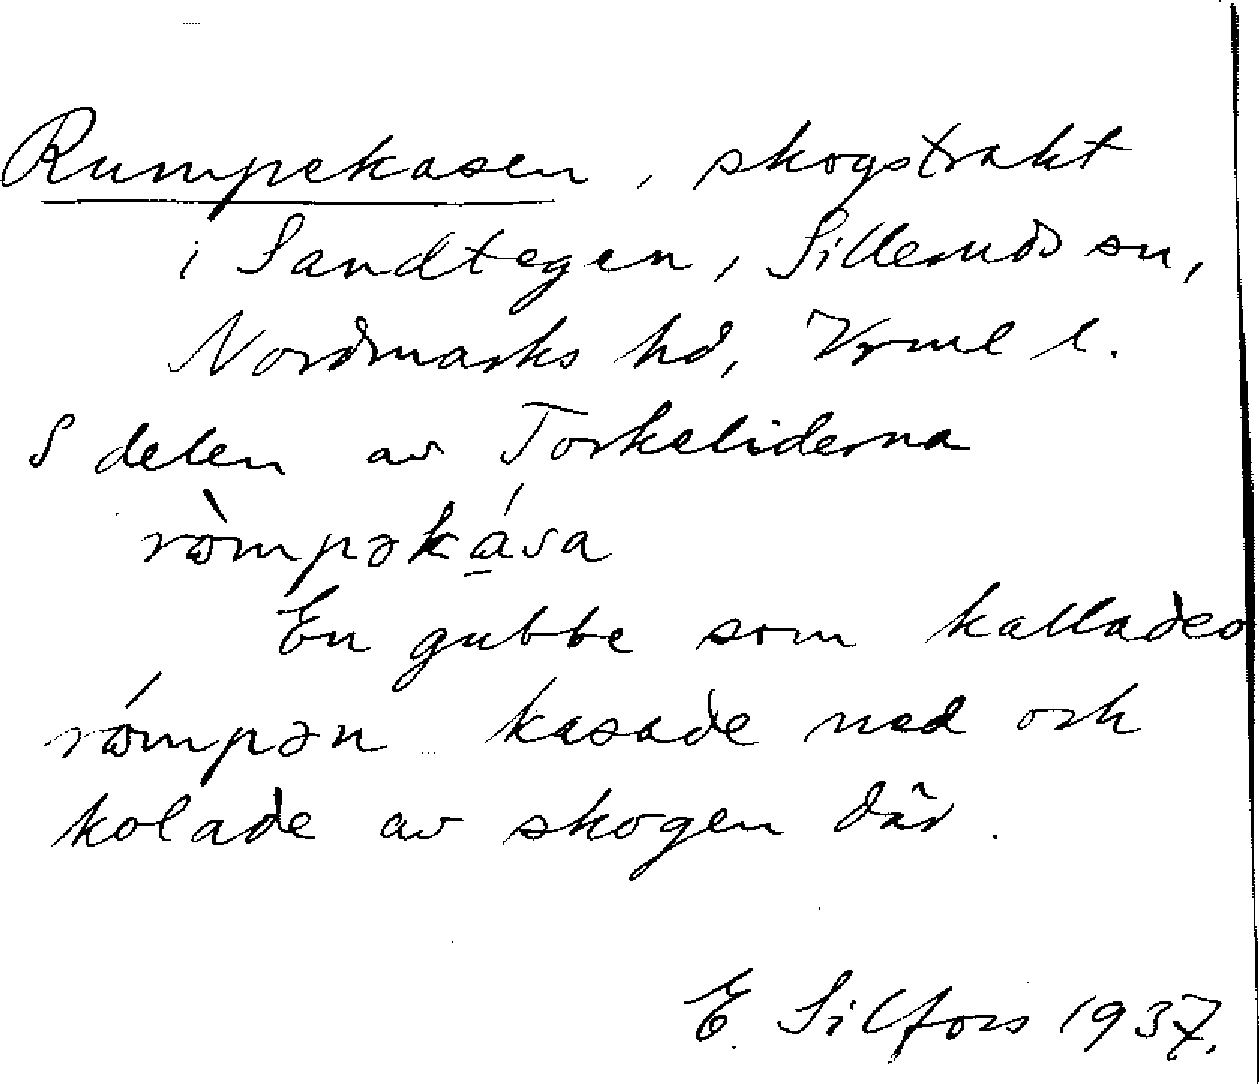 Rumpekasen, skogstrakt
i Sandtegen, Silleruds sn,
Nordmarks hd, Vrml l.
S delen av Torkeliderna
ròmpəká̱sa
En gubbe som kallades
rómpən kasade ned och
kolade av skogen där.
E. Silfors 1937.